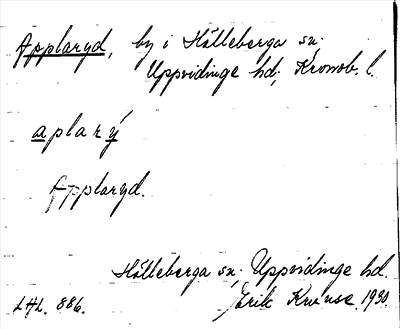 Applaryd, by i Hälleberga sn.
Uppvidinge hd, Kronob. l.
aplarý
Applaryd.
Hälleberga sn, Uppvidinge hd.
LHL. 886. Erik 1930